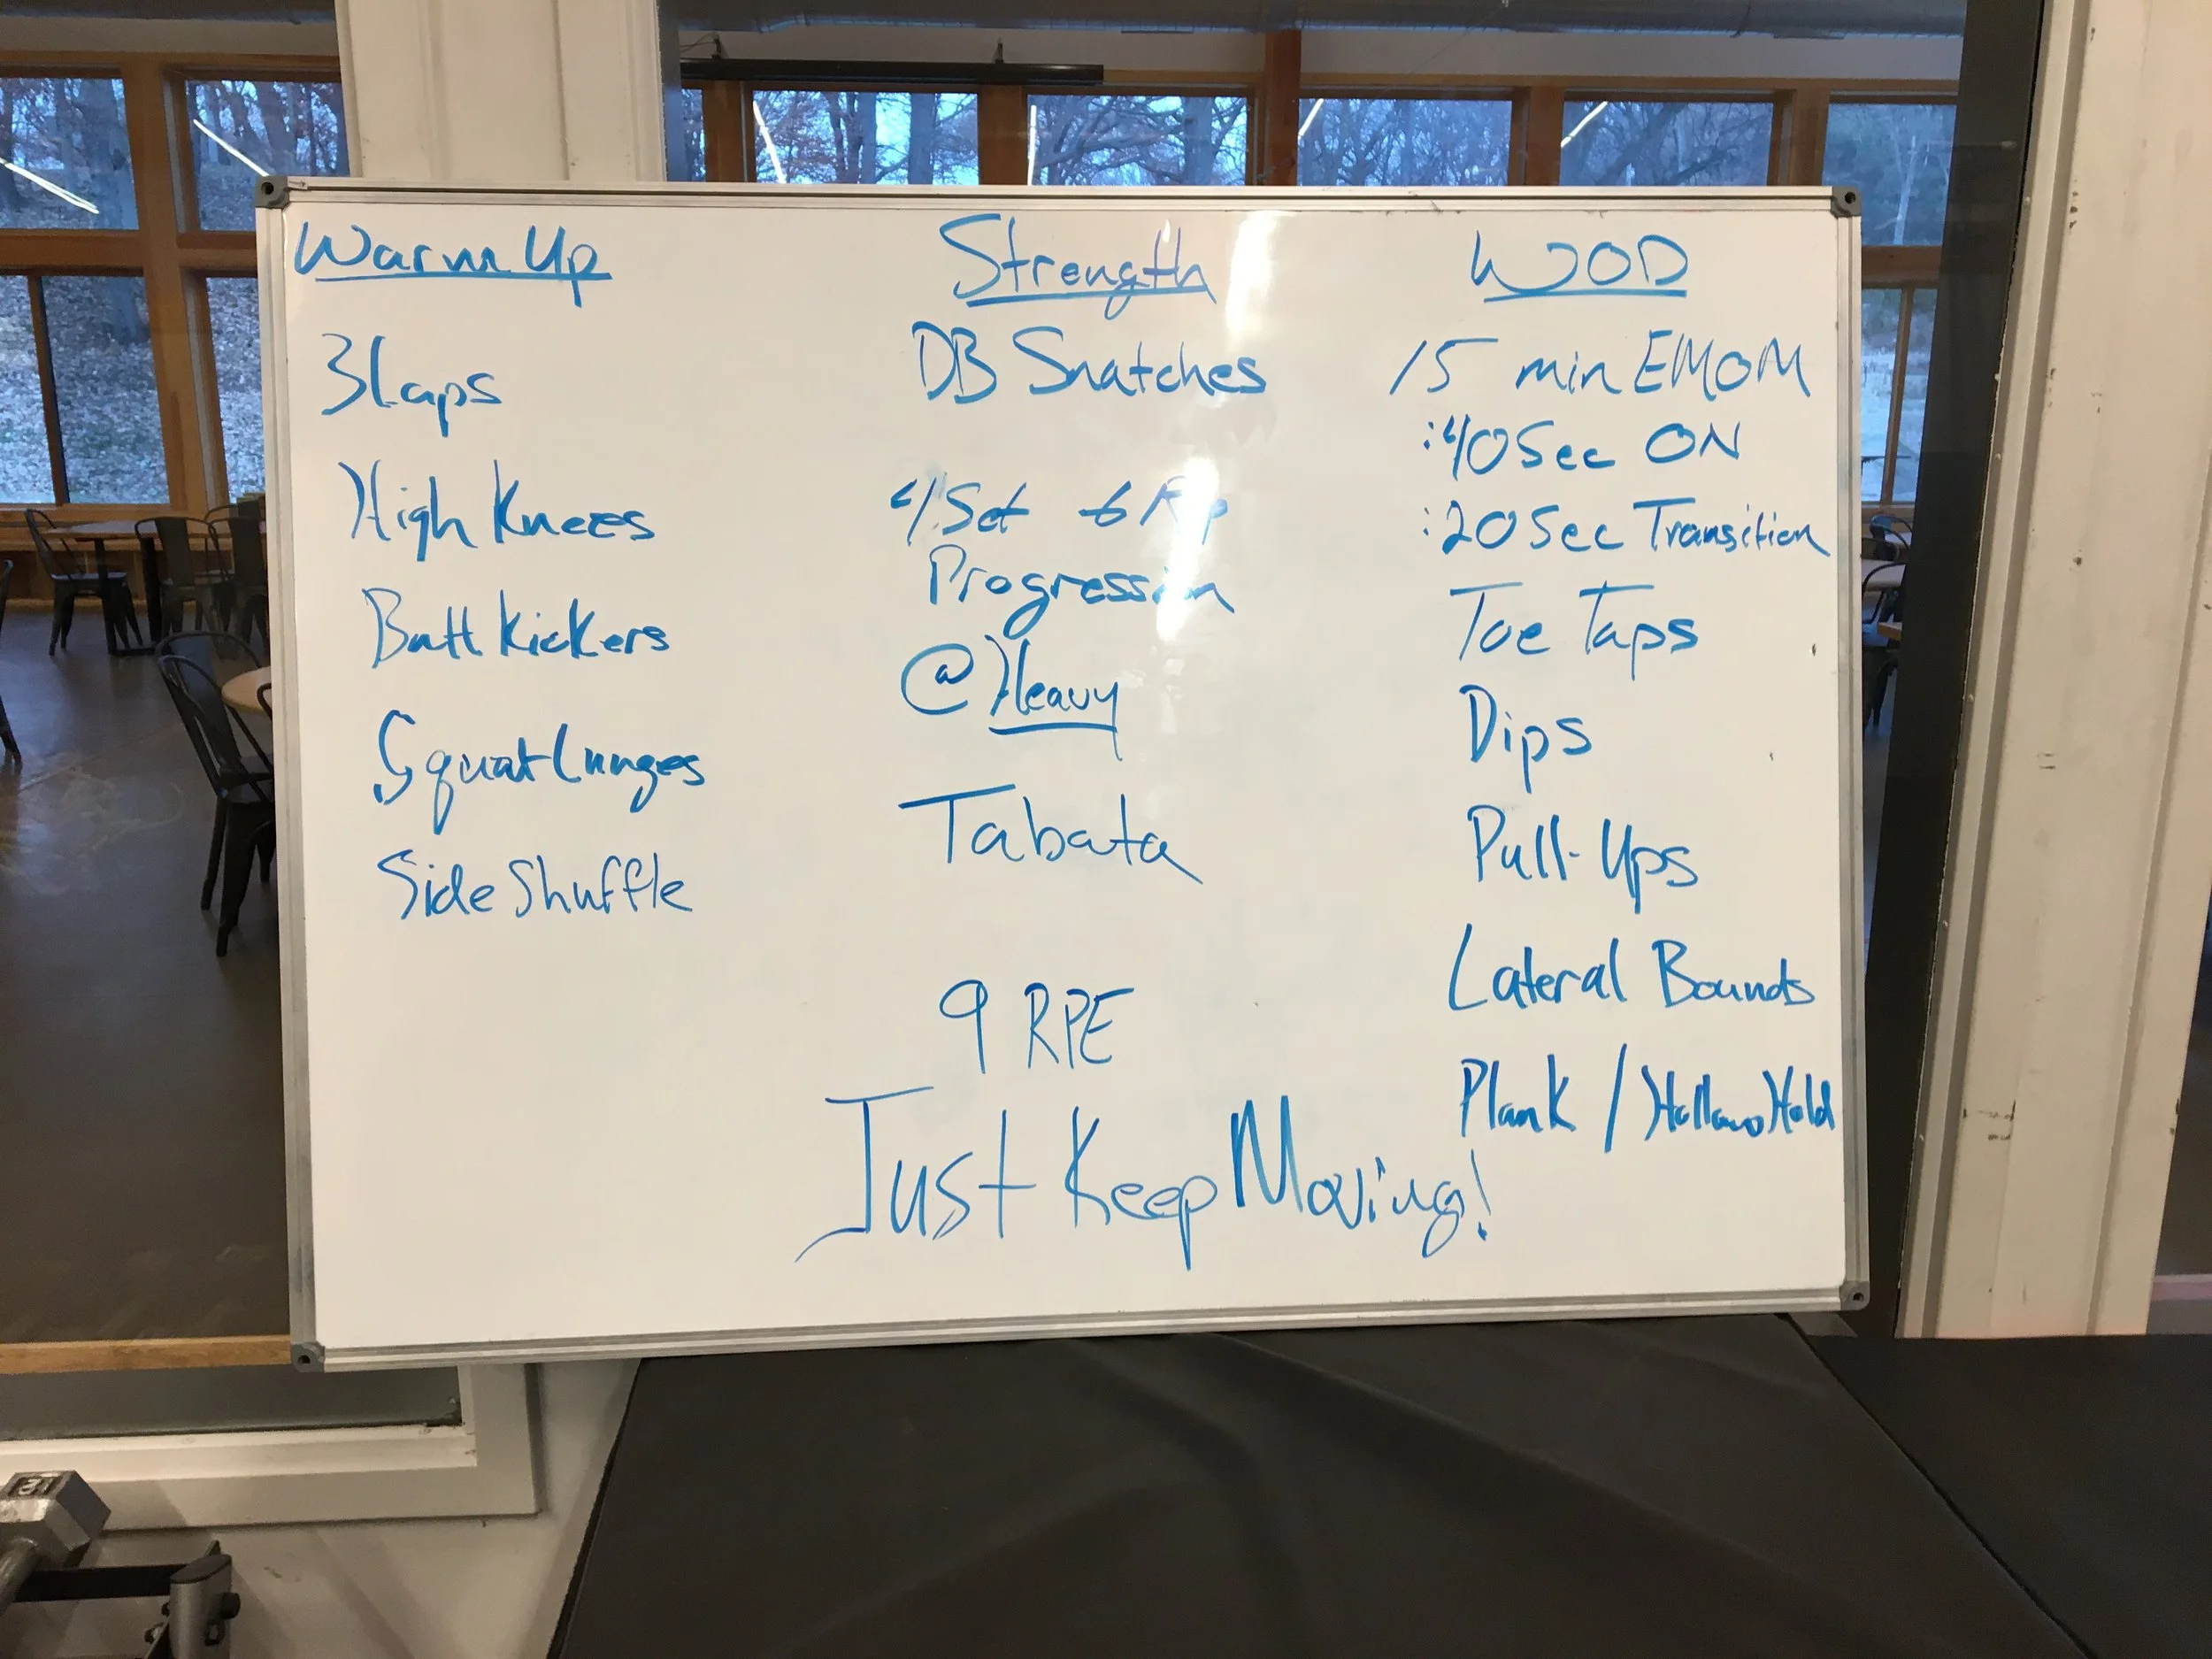 Warm Up
3 Laps
High Knees
Butt Kickers
Squat Lunges
Side Shuffle
Strength
DB Snatches
4 Set 6 Rep
Progression
@ Heavy
Tabata
9 RPE
Just Keep Moving!
WOD
15 min EMOM
:40 Sec ON
:20 Sec Transition
Toe Taps
Dips
Pull-Ups
Lateral Bounds
Plank / Hollow Hold